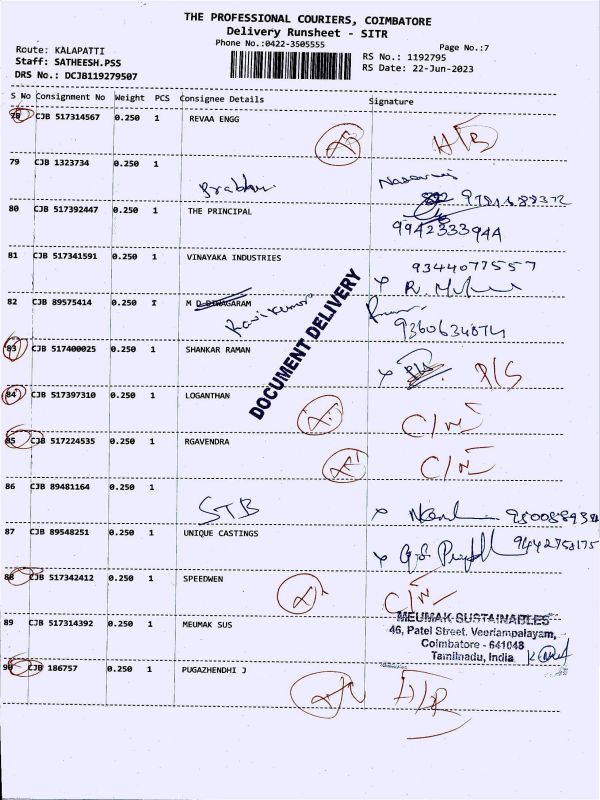 THE PROFESSIONAL COURIERS, COIMBATORE
Delivery Runsheet - SITR
Phone No.:0422-3505555
Page No.:7
Route: KALAPATTI
Staff: SATHEESH.PSS
DRS No.: DCJB119279507
RS No.: 1192795
RS Date: 22-Jun-2023
S No Consignment No Weight PCS Consignee Details Signature
78 CJB 517314567 0.250 1 REVAA ENGG
79 CJB 1323734 0.250 1
80 CJB 517392447 0.250 1 THE PRINCIPAL
9942333944
81 CJB 517341591 0.250 1 VINAYAKA INDUSTRIES
9344077557
82 CJB 89575414 0.250 1 M D DINAGARAM
Ravikumar
9360634074
DOCUMENT DELIVERY
83 CJB 517400025 0.250 1 SHANKAR RAMAN
P/S
84 CJB 517397310 0.250 1 LOGANTHAN
85 CJB 517224535 0.250 1 RGAVENDRA
86 CJB 89481164 0.250 1
STB
87 CJB 89548251 0.250 1 UNIQUE CASTINGS
88 CJB 517342412 0.250 1 SPEEDWEN
89 CJB 517314392 0.250 1 MEUMAK SUS
MEUMAK SUSTAINABLES
46, Patel Street, Veeriampalayam,
Coimbatore - 641048
Tamilnadu, India
90 CJB 186757 0.250 1 PUGAZHENDHI J